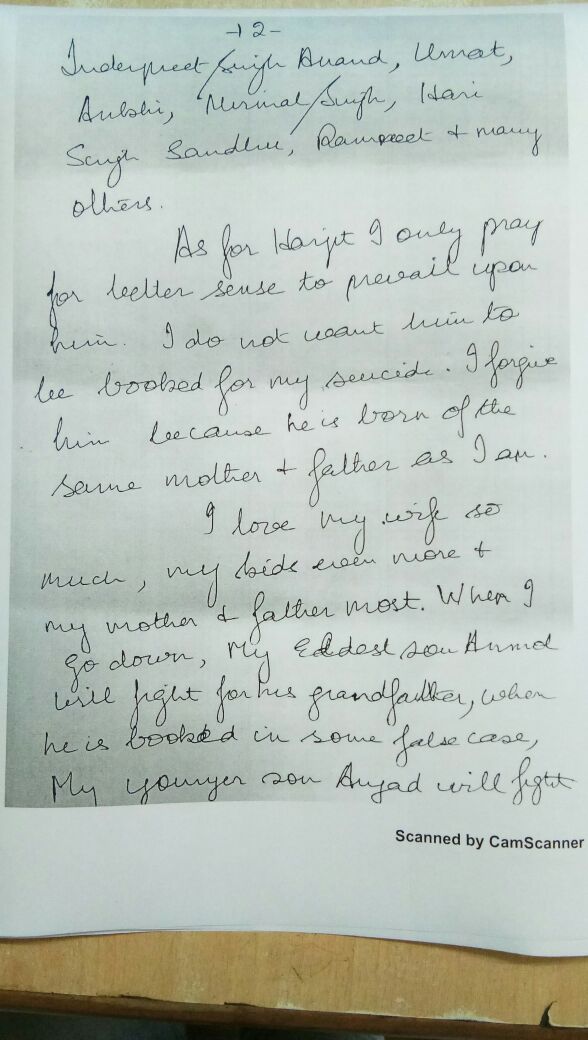 -12-
Inderpreet Singh Anand, Unnat,
Aulakh, Nirmal Singh, Hari
Singh Sandhu, Rampreet + many
others.
As for Harjit I only pray
for better sense to prevail upon
him. I do not want him to
be booked for my suicide. I forgive
him because he is born of the
same mother + father as I am.
I love my wife so
much, my kids even more +
my mother & father most. When I
go down, My Eldest son
will fight for his grandfather, when
he is booked in some false case,
My younger son Angad will fight
Scanned by CamScanner